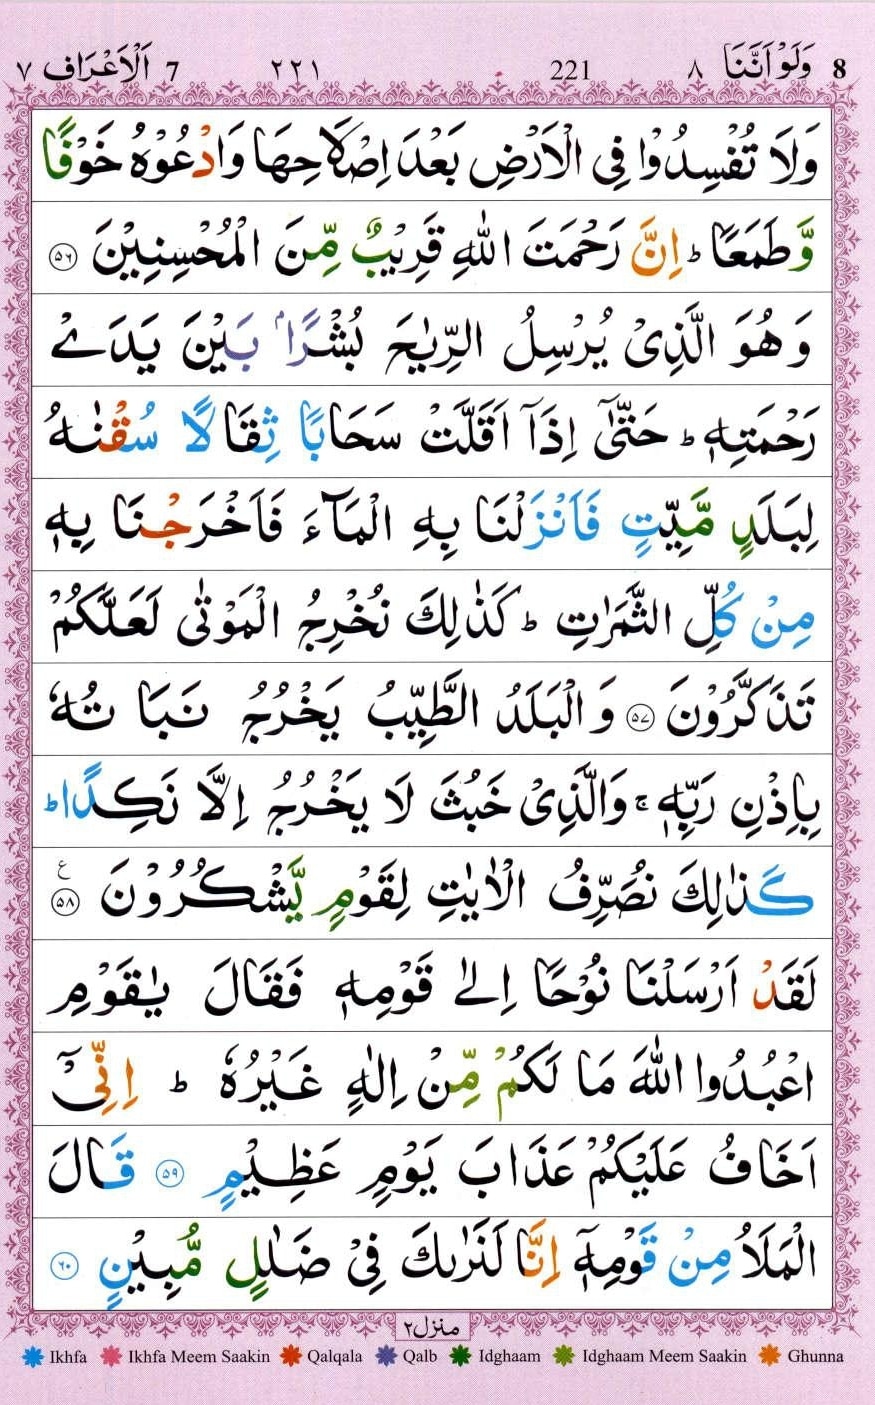 8 وَلَوْ اَنَّنَا ٨ 221 ٢٢١ 7 اَلْاَعْرَاف ٧
وَلَا تُفْسِدُوْا فِى الْاَرْضِ بَعْدَ اِصْلَاحِهَا وَادْعُوْهُ خَوْفًا
وَّطَمَعًا ؕ اِنَّ رَحْمَتَ اللّٰهِ قَرِيْبٌ مِّنَ الْمُحْسِنِيْنَ ﴿٥٦﴾
وَهُوَ الَّذِىْ يُرْسِلُ الرِّيٰحَ بُشْرًاۢ بَيْنَ يَدَىْ
رَحْمَتِهٖ ؕ حَتّٰىٓ اِذَاۤ اَقَلَّتْ سَحَابًا ثِقَالًا سُقْنٰهُ
لِبَلَدٍ مَّيِّتٍ فَاَنْزَلْنَا بِهِ الْمَآءَ فَاَخْرَجْنَا بِهٖ
مِنْ كُلِّ الثَّمَرٰتِ ؕ كَذٰلِكَ نُخْرِجُ الْمَوْتٰى لَعَلَّكُمْ
تَذَكَّرُوْنَ ﴿٥٧﴾ وَالْبَلَدُ الطَّيِّبُ يَخْرُجُ نَبَاتُهٗ
بِاِذْنِ رَبِّهٖ ۚ وَالَّذِىْ خَبُثَ لَا يَخْرُجُ اِلَّا نَكِدًا ؕ
كَذٰلِكَ نُصَرِّفُ الْاٰيٰتِ لِقَوْمٍ يَّشْكُرُوْنَ ﴿٥٨﴾ ع
لَقَدْ اَرْسَلْنَا نُوْحًا اِلٰى قَوْمِهٖ فَقَالَ يٰقَوْمِ
اعْبُدُوا اللّٰهَ مَا لَكُمْ مِّنْ اِلٰهٍ غَيْرُهٗ ؕ اِنِّىْۤ
اَخَافُ عَلَيْكُمْ عَذَابَ يَوْمٍ عَظِيْمٍ ﴿٥٩﴾ قَالَ
الْمَلَاُ مِنْ قَوْمِهٖۤ اِنَّا لَنَرٰىكَ فِىْ ضَلٰلٍ مُّبِيْنٍ ﴿٦٠﴾
منزل ٢
Ikhfa Ikhfa Meem Saakin Qalqala Qalb Idghaam Idghaam Meem Saakin Ghunna